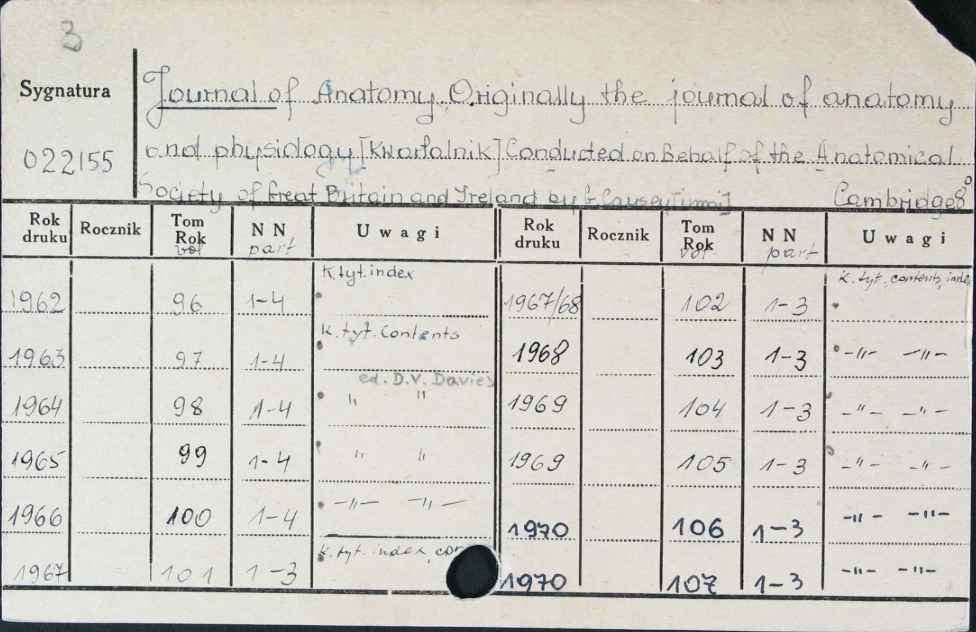 3
Sygnatura
Journal of Anatomy. Originally the journal of anatomy
022155
and physiology [Kwartalnik] Conducted on Behalf of the Anatomical
Society of Great Britain and Ireland by Causey Cambridge 8°
Rok druku Rocznik Tom Rok vol N N part Uwagi Rok druku Rocznik Tom Rok vol. N N part Uwagi
K. tyt. index K. tyt. contents, index
1962 96 1-4 1967/68 102 1-3
K. tyt. Contents
1963 97 1-4 1968 103 1-3 -"- -"-
ed. D.V. Davies
1964 98 1-4 " " 1969 104 1-3 -"- -"-
1965 99 1-4 " " 1969 105 1-3 -"- -"-
1966 100 1-4 -"- -"- 1970 106 1-3 -"- -"-
K. tyt. index, con
1967 101 1-3 1970 107 1-3 -"- -"-